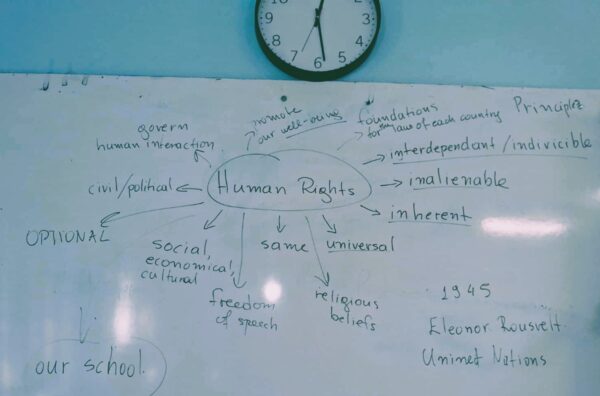 10
2
9
3
8
4
7
5
6
promote
our well-being
foundations
for the laws of each country
Principles
govern
human interaction
interdependant/indivicible
civil/political
Human Rights
inalienable
inherent
OPTIONAL
social,
economical,
cultural
same
universal
freedom
of speech
religious
beliefs
1945
Eleonor Rousvelt
Uninet Nations
our school